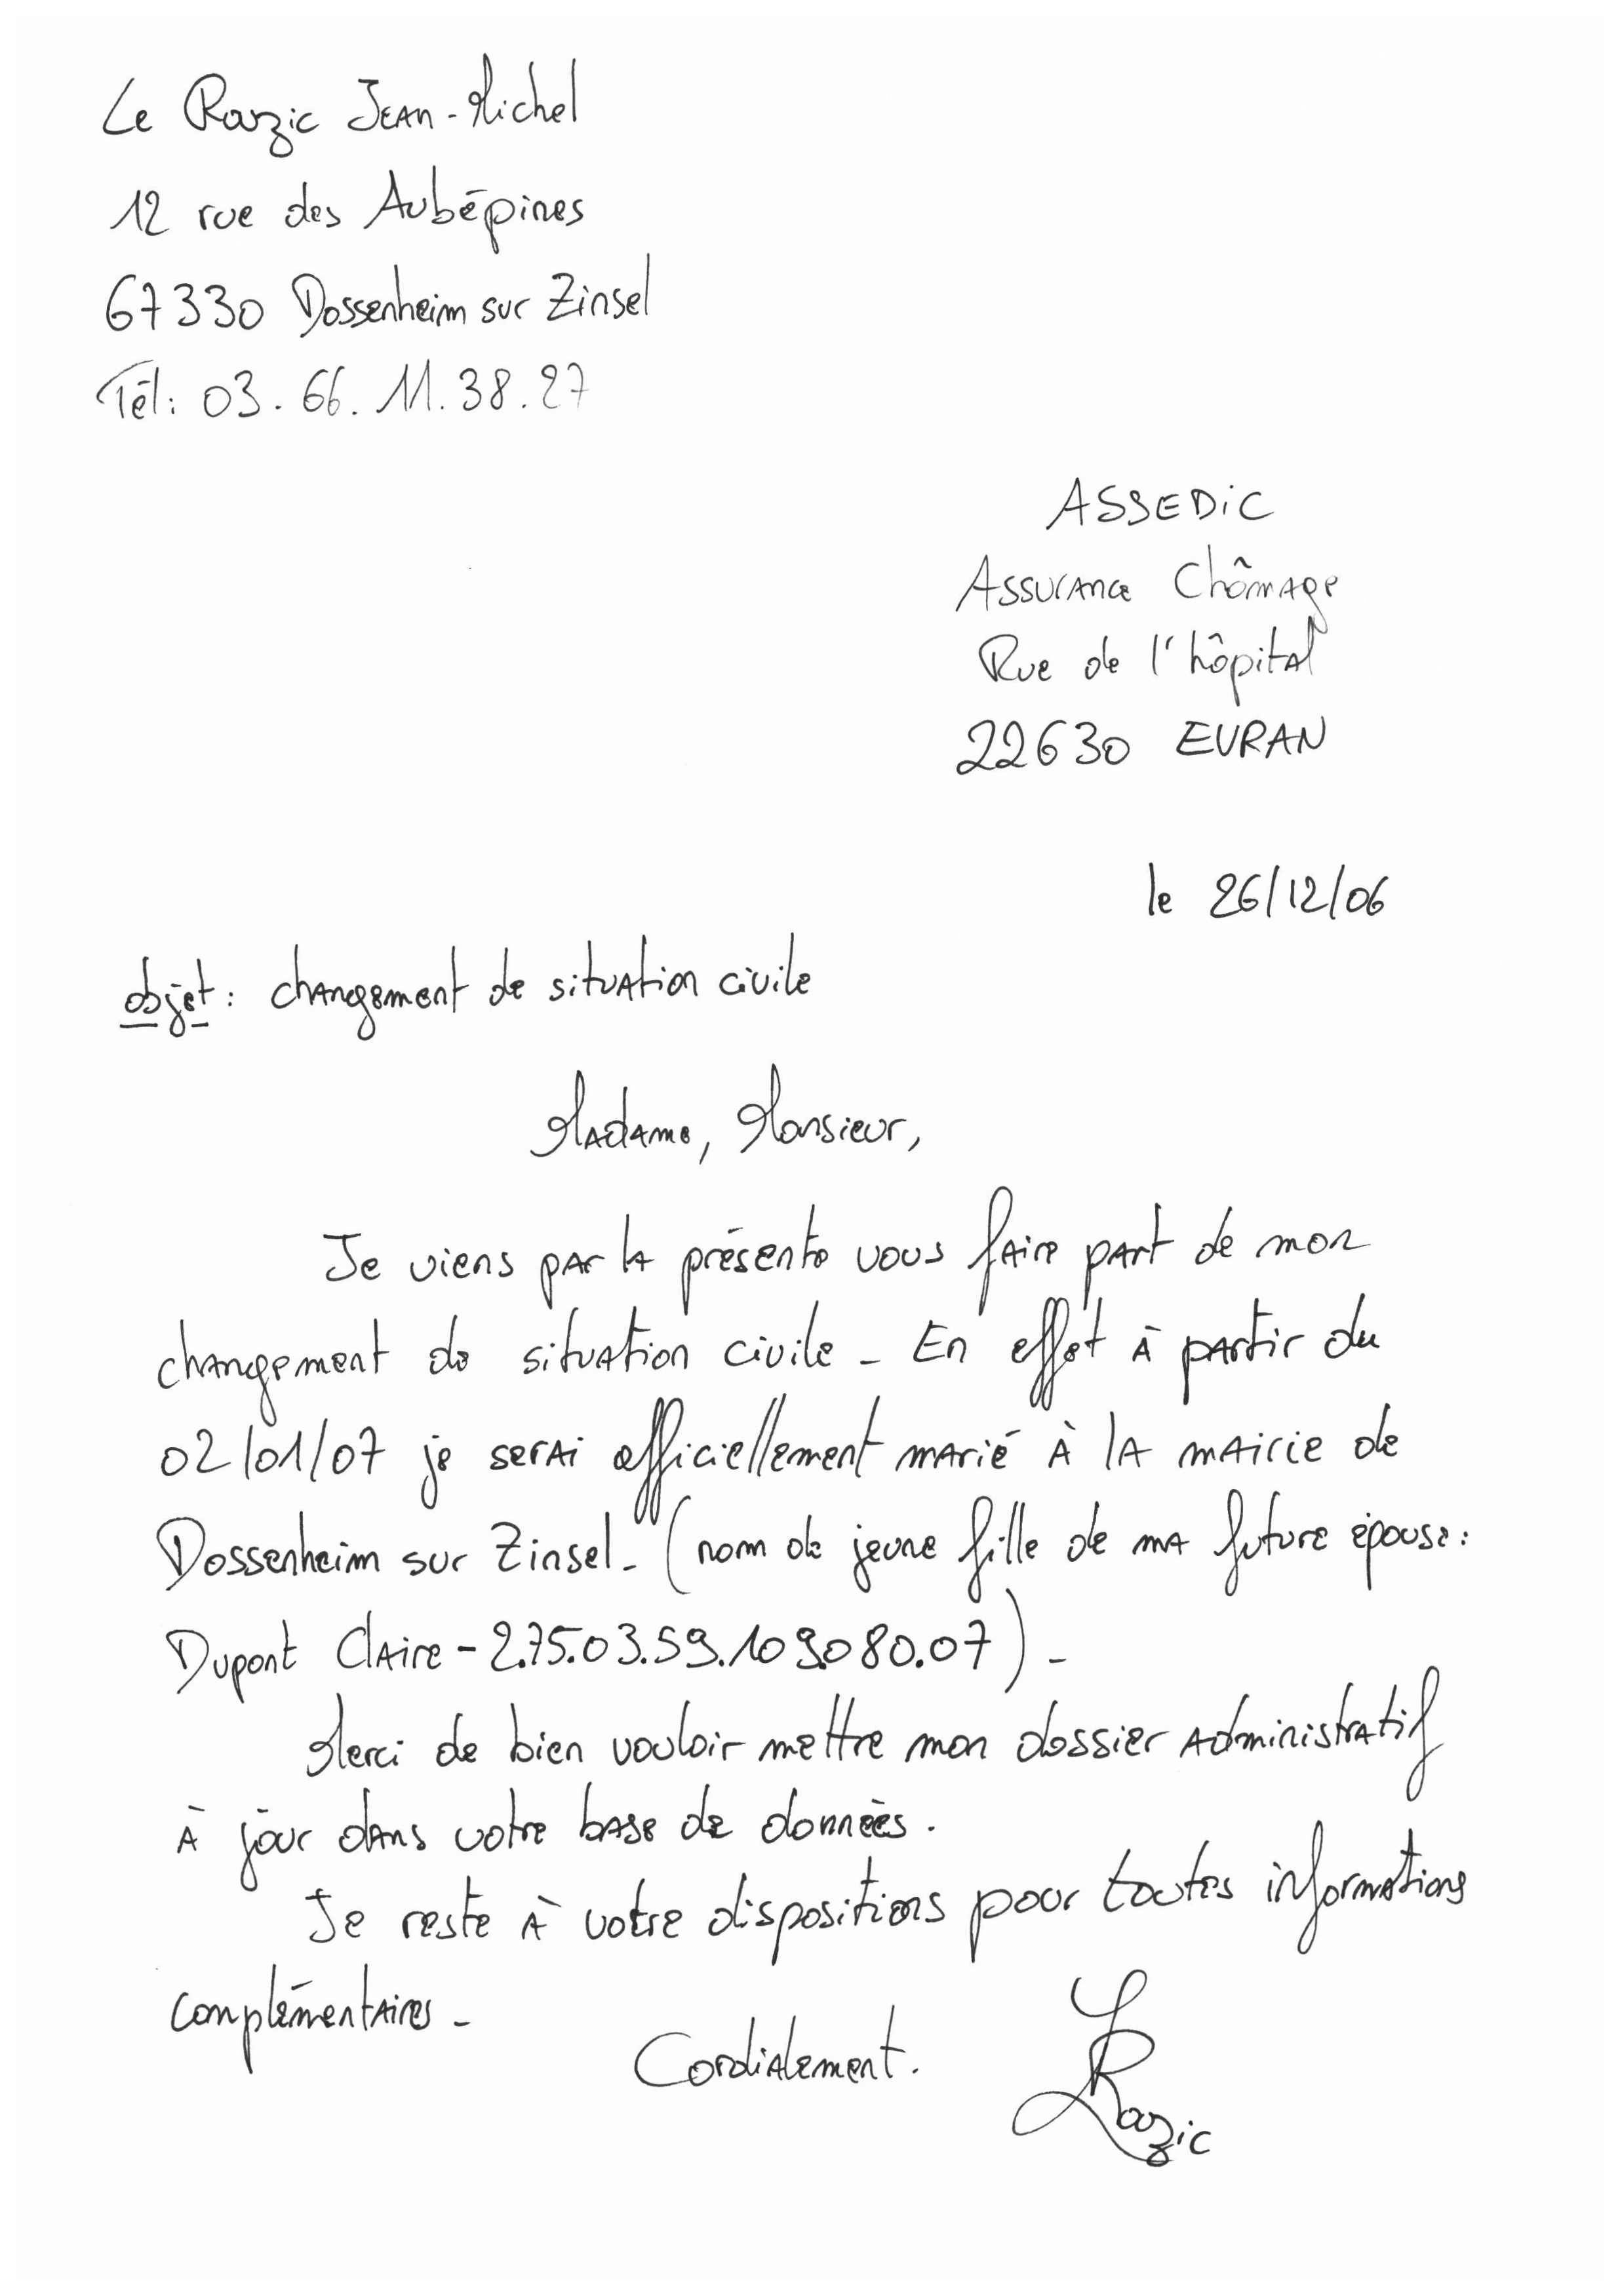 Le Razic Jean-Michel
12 rue des Aubépines
67330 Dossenheim sur Zinsel
Tél: 03.66.11.38.27
ASSEDIC
Assurance Chômage
Rue de l'hôpital
22630 EVRAN
le 26/12/06
objet: changement de situation civile
Madame, Monsieur,
Je viens par la présente vous faire part de mon
changement de situation civile - En effet à partir du
02/01/07 je serai officiellement marié à la mairie de
Dossenheim sur Zinsel - (nom de jeune fille de ma future épouse:
Dupont Claire - 2.75.03.59.109.080.07) -
Merci de bien vouloir mettre mon dossier administratif
à jour dans votre base de données.
Je reste à votre dispositions pour toutes informations
complémentaires -
Cordialement.
LRazic